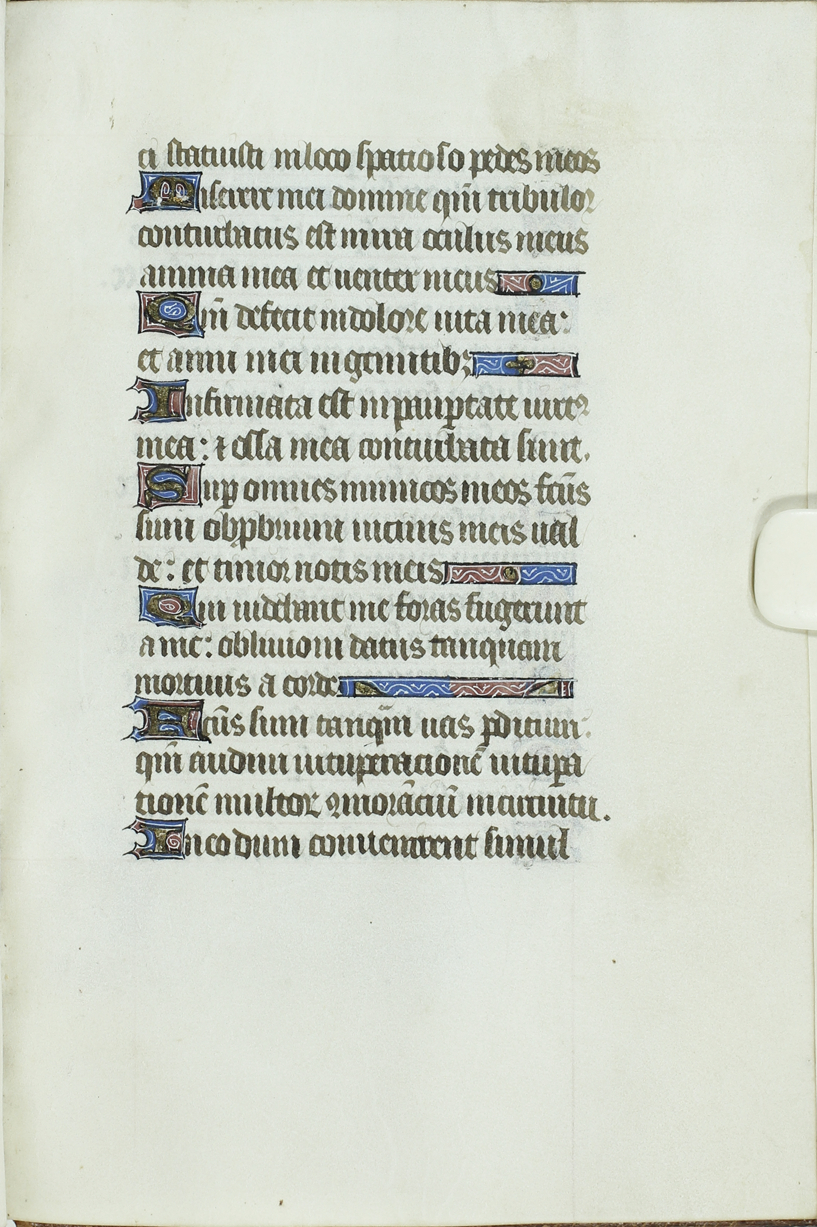 ci statuisti in loco spatioso pedes meos
Miserere mei domine qm̄ tribulor
conturbatus est in ira oculus meus
anima mea et uenter meus
Qm̄ defecit in dolore uita mea:
et anni mei in gemitibꝫ
Infirmata est in pauꝑtate uirtꝰ
mea: ⁊ ossa mea conturbata sunt.
Suꝑ omnes inimicos meos fcūs
sum obꝓbrium uicinis meis ual
de: et timor notis meis
Qui uidebant me foras fugerunt
a me: obliuioni datus tanquam
mortuus a corde
Fcūs sum tanqm̄ uas ꝑditum:
qm̄ audiui uituꝑationē uituꝑa
tionē multoꝝ ꝯmorāciū in circuitu.
In eo dum conuenirent simul